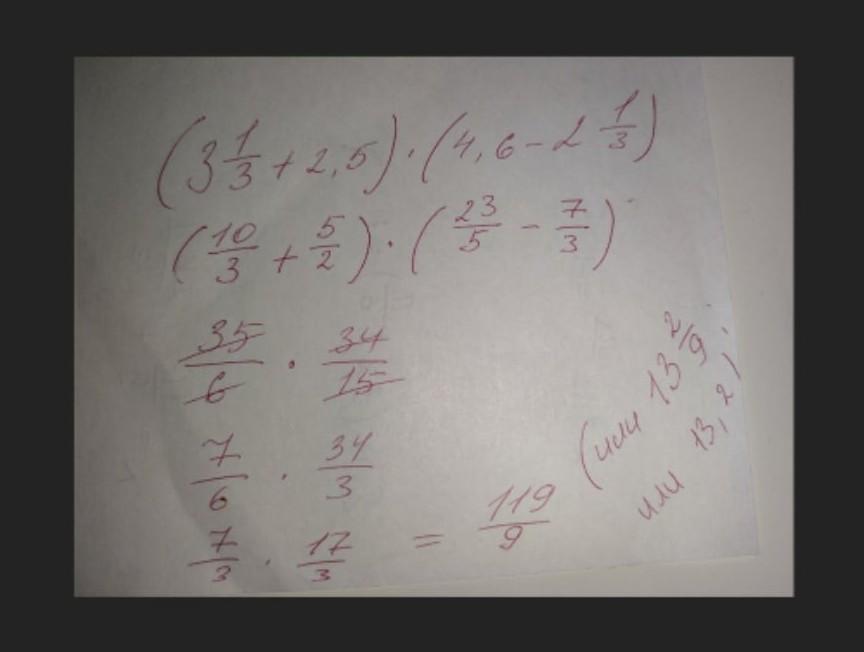 (3 1/3 + 2,5) · (4,6 - 2 1/3)
(10/3 + 5/2) · (23/5 - 7/3)
35/6 · 34/15
7/6 · 34/3
7/3 · 17/3 = 119/9
(или 13 2/9
или 13,2)